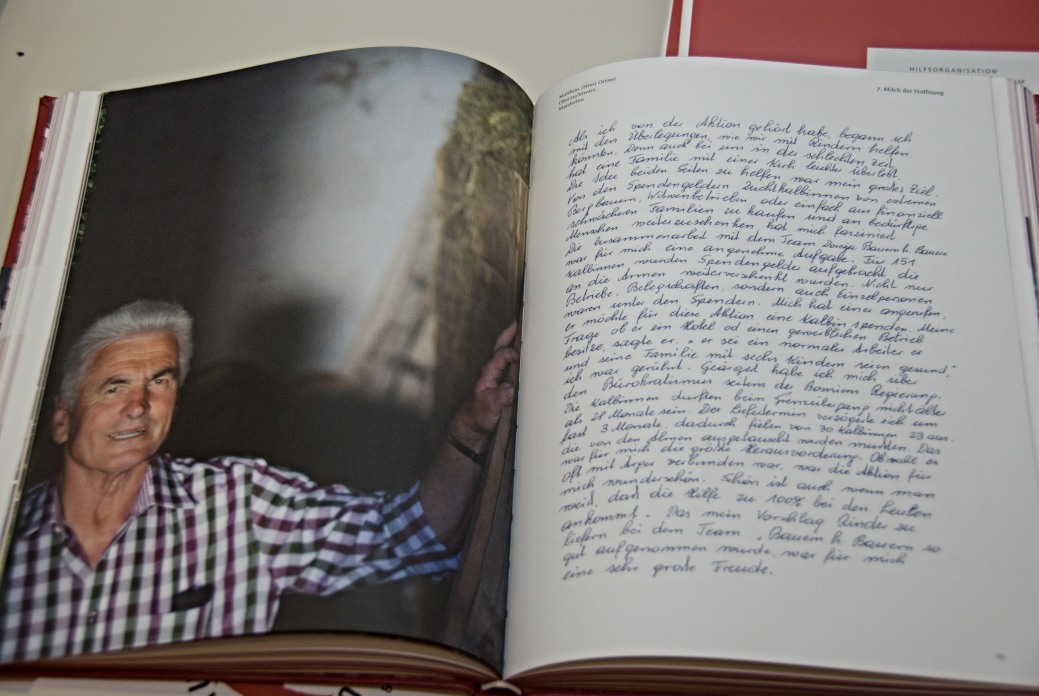 HILFSORGANISATION
7. Milch der Hoffnung
Als ich von der Aktion gehört habe, begann ich
mit den Überlegungen, wie wir mit Rindern helfen
könnten. Denn auch bei uns in der schlechten Zeit
hat eine Familie mit einer Kuh leichter überlebt.
Die Idee beiden Seiten zu helfen war mein großes Ziel.
Von den Spendengeldern Zuchtkalbinnen von extremen
Bergbauern, Witwenbetrieben oder einfach aus finanziell
schwächeren Familien zu kaufen und an bedürftige
Menschen weiterzuschenken, hat mich fasziniert.
Die Zusammenarbeit mit dem Team Bauern h. Bauern
war für mich eine angenehme Aufgabe. Für 151
Kalbinnen wurden Spendengelder aufgebracht die
an die Armen weiterverschenkt wurden. Nicht nur
Betriebe, Belegschaften, sondern auch Einzelpersonen
waren unter den Spendern. Mich hat einer angerufen,
er möchte für diese Aktion eine Kalbin spenden. Meine
Frage ob er ein Hotel od einen gewerblichen Betrieb
besitze, sagte er, "er sei ein normaler Arbeiter er
und seine Familie mit sechs Kindern seien gesund,"
ich war gerührt. Geärgert habe ich mich über
den Bürokratismus seitens der Regierung.
Die Kalbinnen durften beim Grenzübergang nicht älter
als 28 Monate sein. Der Liefertermin verzögerte sich um
fast 3 Monate, dadurch fielen von 30 Kalbinnen 23 aus.
die von den Almen ausgetauscht werden mussten. Das
war für mich die große Herausvorderung. Obwohl es
oft mit Ärger verbunden war, war die Aktion für
mich wunderschön. Schön ist auch wenn man
weiß, daß die Hilfe zu 100% bei den Leuten
ankommt. Das mein Vorschlag Rinder zu
liefern bei dem Team "Bauern h. Bauern so
gut aufgenommen wurde, war für mich
eine sehr große Freude.